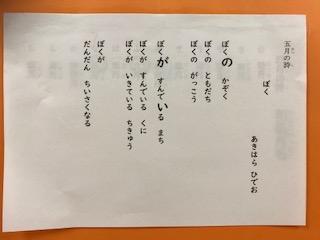 五月の詩
ぼく
あきはら ひでお
ぼくの かぞく
ぼくの ともだち
ぼくの がっこう
ぼくが すんでいる まち
ぼくが すんでいる くに
ぼくが いきている ちきゅう
ぼくが
だんだん ちいさくなる